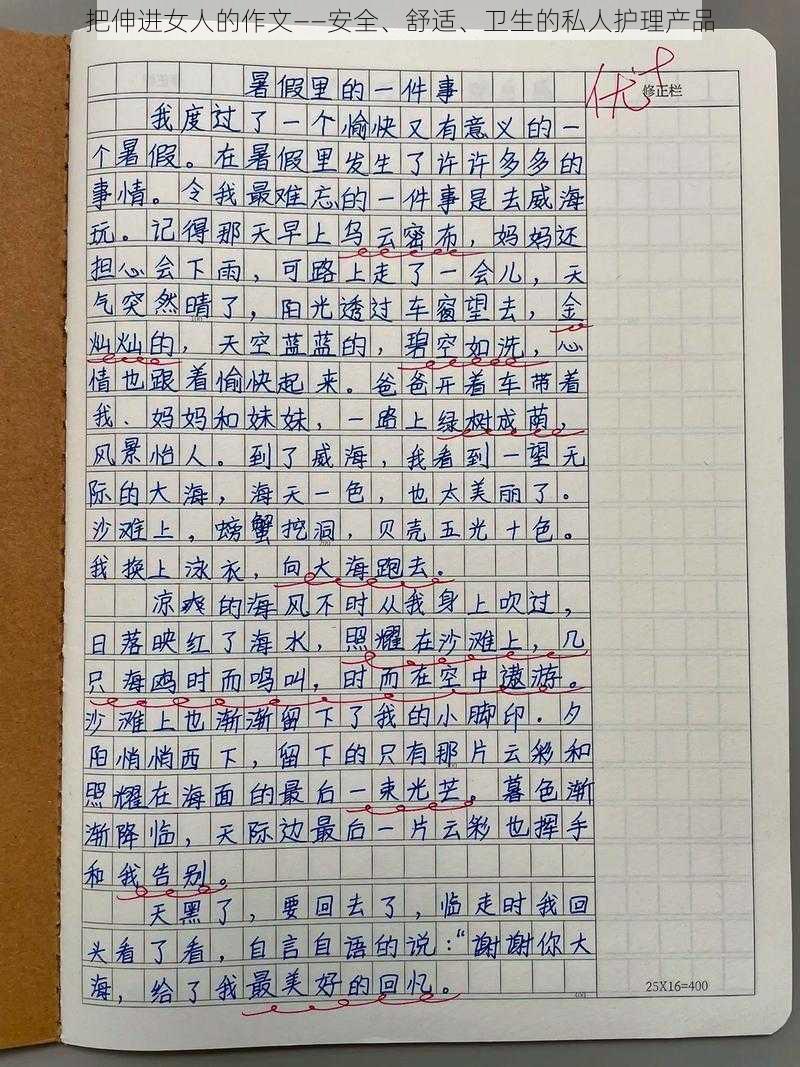 把伸进女人的作文——安全、舒适、卫生的私人护理产品
优+
修正栏
暑假里的一件事
我度过了一个愉快又有意义的一
个暑假。在暑假里发生了许许多多的
事情。令我最难忘的一件事是去威海
玩。记得那天早上乌云密布，妈妈还
担心会下雨，可路上走了一会儿，天
气突然晴了，阳光透过车窗望去，金
灿灿的，天空蓝蓝的，碧空如洗，心
情也跟着愉快起来。爸爸开着车带着
我、妈妈和妹妹，一路上绿树成荫，
风景怡人。到了威海，我看到一望无
际的大海，海天一色，也太美丽了。
沙滩上，螃蟹挖洞，贝壳五光十色。
我换上泳衣，向大海跑去。
凉爽的海风不时从我身上吹过，
日落映红了海水，照耀在沙滩上，几
只海鸥时而鸣叫，时而在空中遨游。
沙滩上也渐渐留下了我的小脚印．夕
阳悄悄西下，留下的只有那片云彩和
照耀在海面的最后一束光芒。暮色渐
渐降临，天际边最后一片云彩也挥手
和我告别。
天黑了，要回去了，临走时我回
头看了看，自言自语的说：“谢谢你大
海，给了我最美好的回忆。
25X16=400